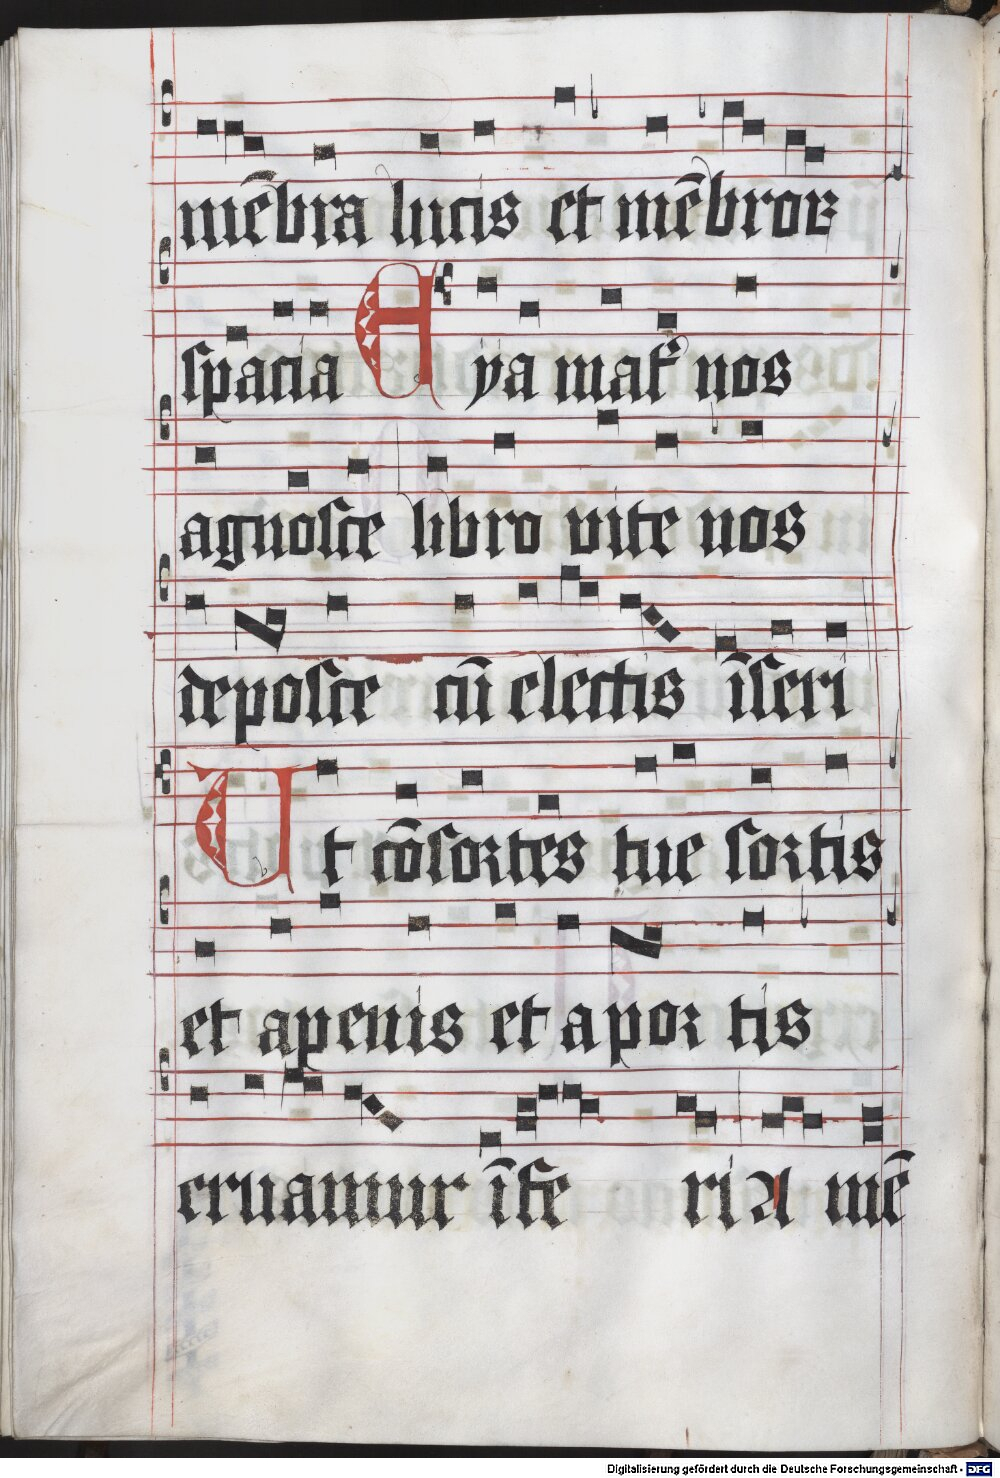 mēbra lucis et mēbroꝝ
spacia Eya mat᷑ nos
agnosce libro vite nos
deposce cū electis īseri
Ut cōsortes tue sortis
et a penis et a portis
eruamur īfe ri Amē
Digitalisierung gefördert durch die Deutsche Forschungsgemeinschaft - DFG